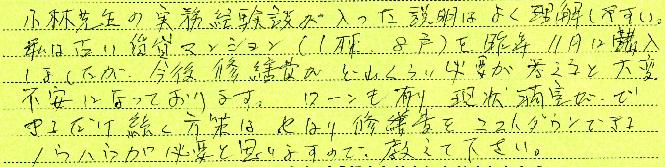 小林先生の実務経験談が入った説明はよく理解しやすい。
私は古い賃貸マンション(1棟 8戸)を昨年11月に購入
しましたが、今後修繕費がどれくらい必要か考えると大変
不安になっております。ローンも有り現状満室がで
きるだけ続く方策はやはり修繕費をコストダウンできる
ノウハウが必要と思いますので、教えて下さい。